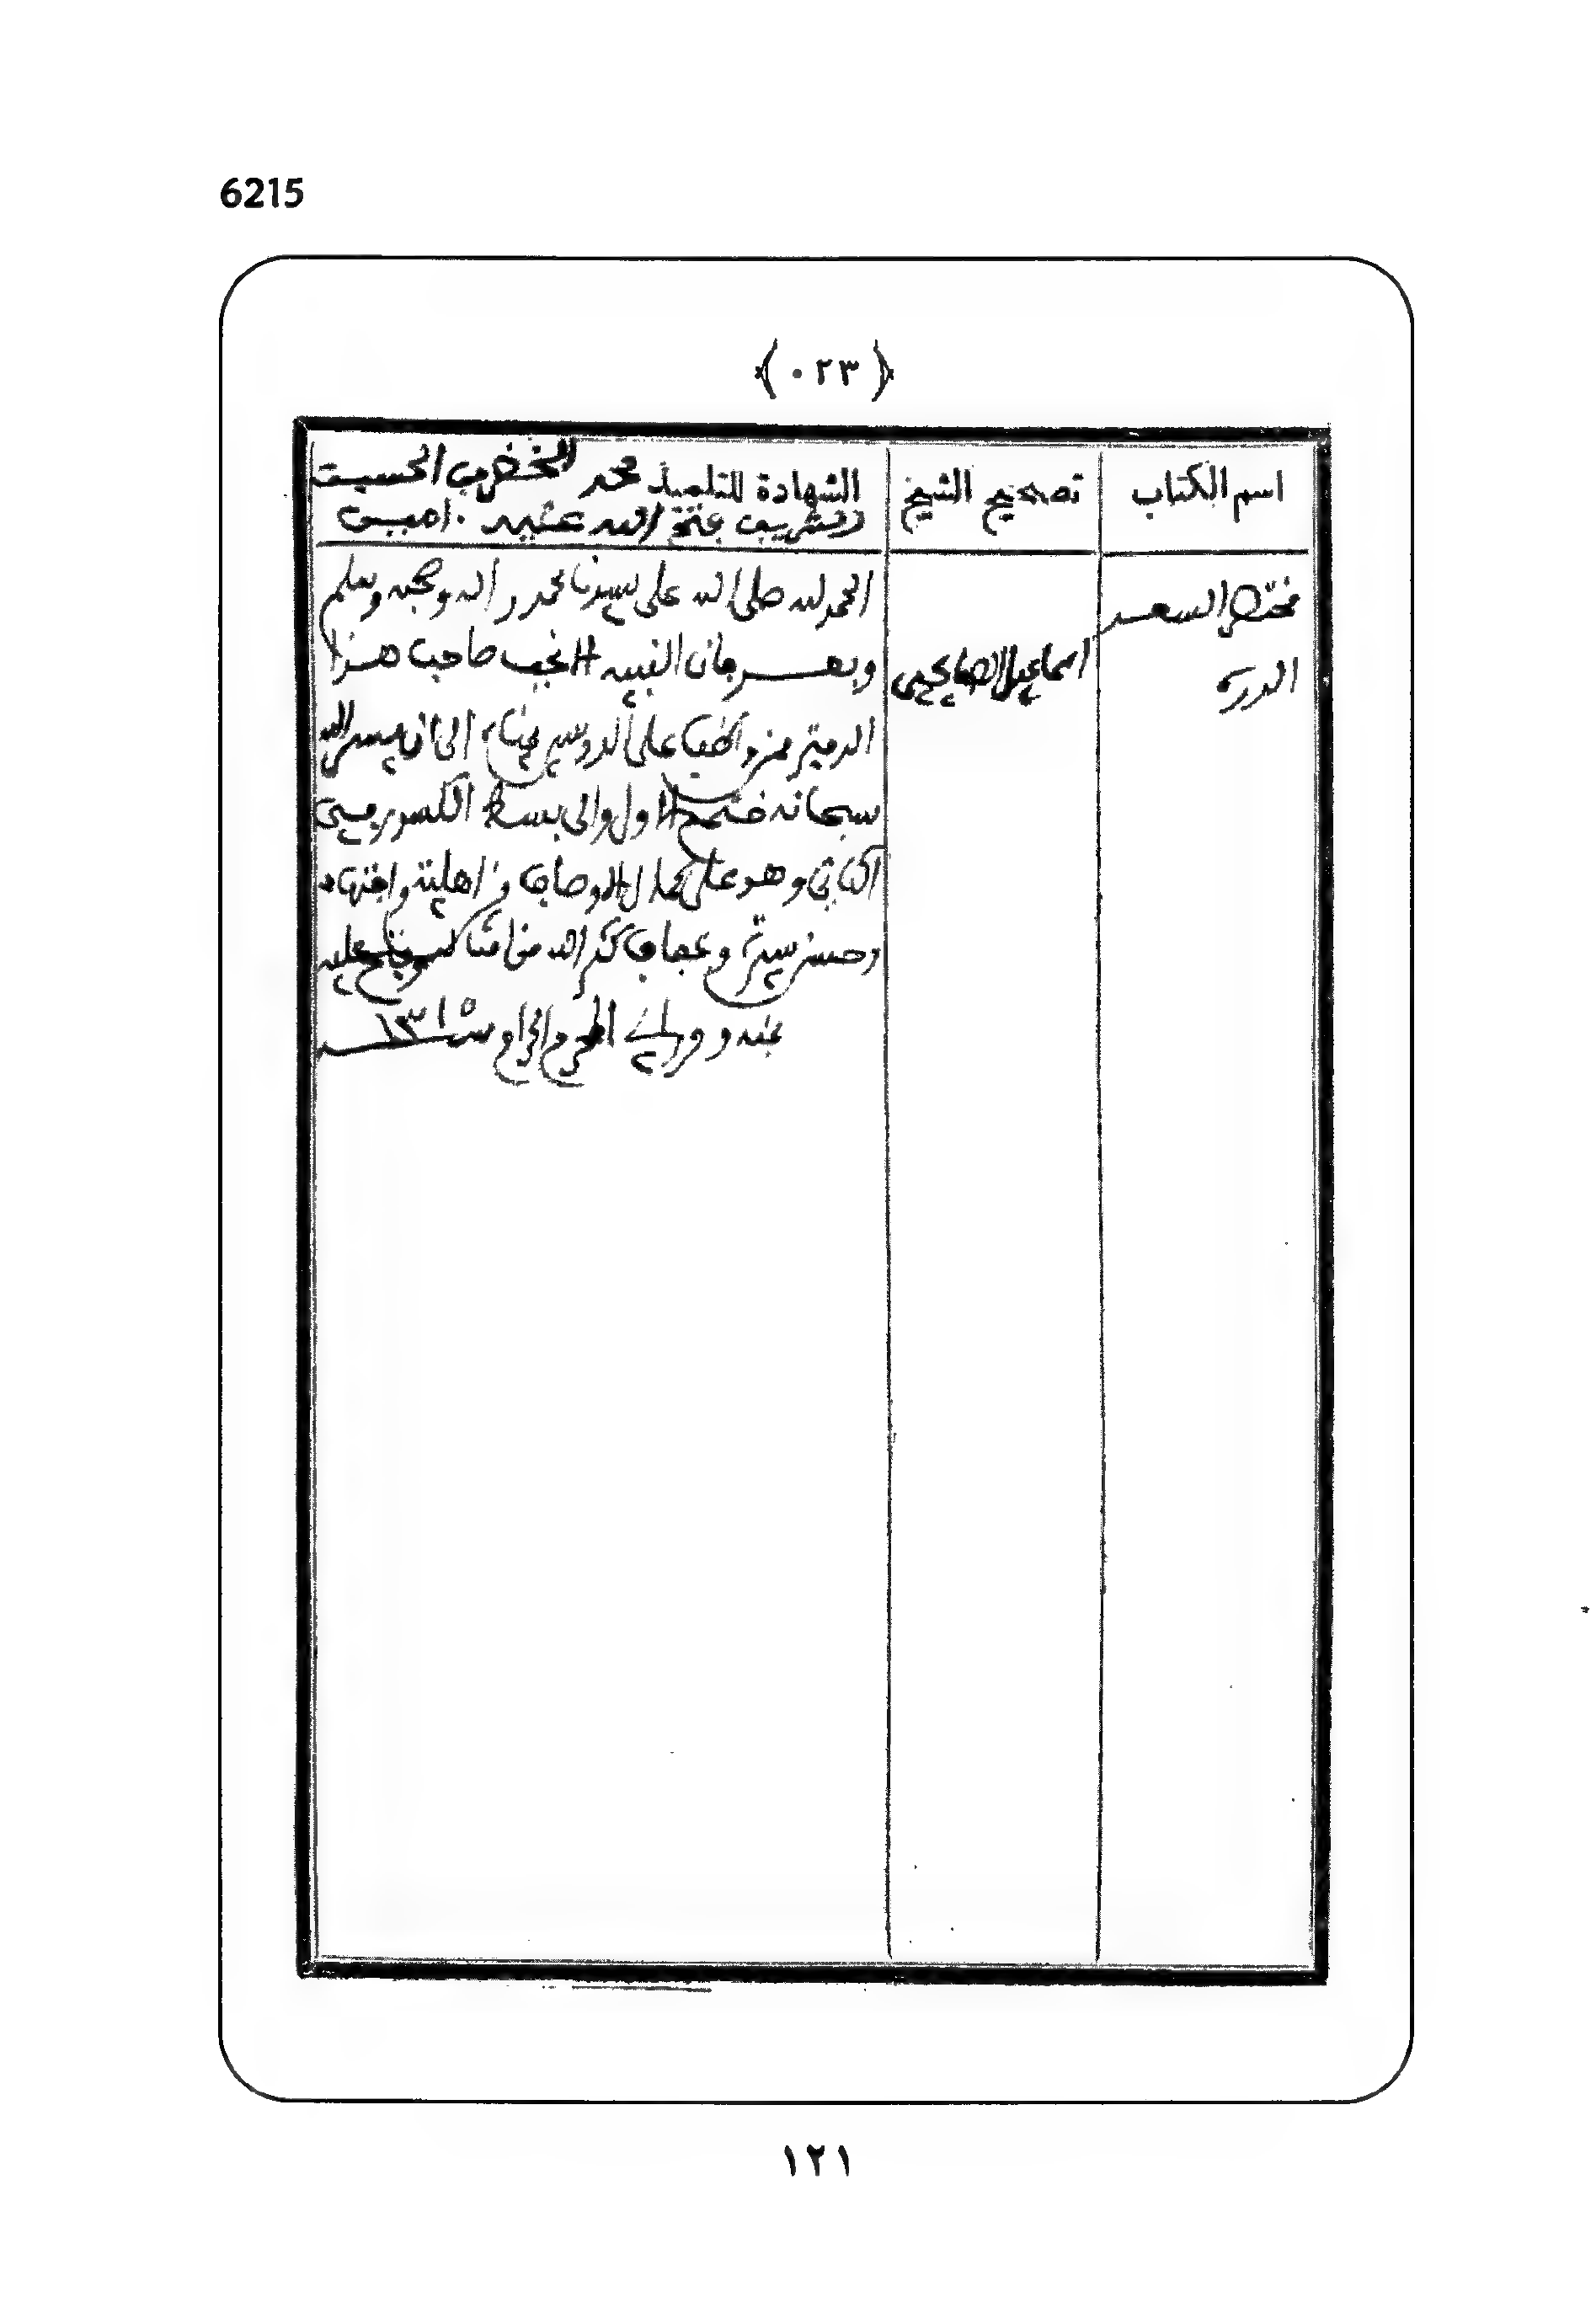 6215
﴿٠٢٣﴾
اسم الكتاب
تصحيح الشيخ
الشهادة للتلميذ محمد الخضر بن الحسين
الشريف فتح الله عليه . امين
مختصر السعد
الدرة
اسماعيل الصفايحي
الحمد لله صلى الله على سيدنا محمد وآله وصحبه وسلم
وبعد فان النبيه الانجب صاحب هذا
الدفتر ممن واظب على الدروس الى ان يسر الله
سبحانه ختم الاول والى بسط الكسور من
الثاني وهو على كمال الاوصاف في اهلية واجتهاد
وحسن سيرة وعفاف كثر الله من امثاله وفتح عليه
بمنه و في المحرم الحرام سنة ١٣١٥
١٢١